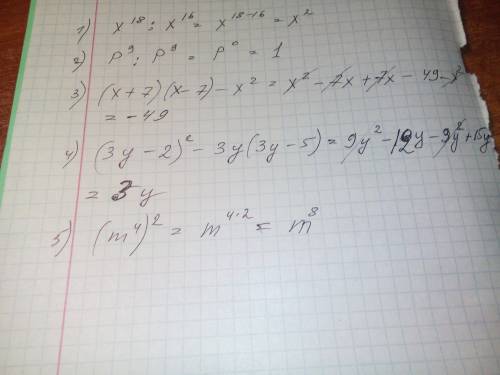 1) x^18 : x^16 = x^18-16 = x^2
2) p^9 : p^9 = p^0 = 1
3) (x+7)(x-7) - x^2 = x^2 - 7x + 7x - 49 - x^2
= -49
4) (3y-2)^2 - 3y(3y-5) = 9y^2 - 12y - 9y^2 + 15y
= 3y
5) (m^4)^2 = m^4·2 = m^8